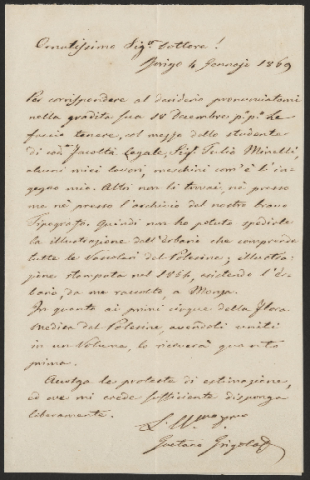 Onoratissimo Sigr. Dottore!
Rovigo 4 Gennajo 1869
Per corrispondere al desiderio pronunciatomi
nella gradita sua 18 Decembre p.o p.o Le
faccio tenere, col mezzo dello studente
di cod.a Facoltà Legale, Sig.r Tullio Minelli,
alcuni miei lavori, meschini com' è l'in-
gegno mio. Altri non li trovai, nè presso
me nè presso l'archivio del nostro bravo
Tipografo. Quindi non ho potuto spedirle
la illustrazione dell'Erbario che comprende
tutte le Vascolari del Polesine; illustra-
zione stampata nel 1854, esistendo l'Er-
bario, da me raccolto, a Monza.
In quanto ai primi cinque della Flora
medica del Polesine, avendoli uniti
in un Volume, lo riceverà quanto
prima.
Accolga le proteste di estimazione,
ed ove mi crede sufficiente disponga
liberamente.
Gaetano Grigolato